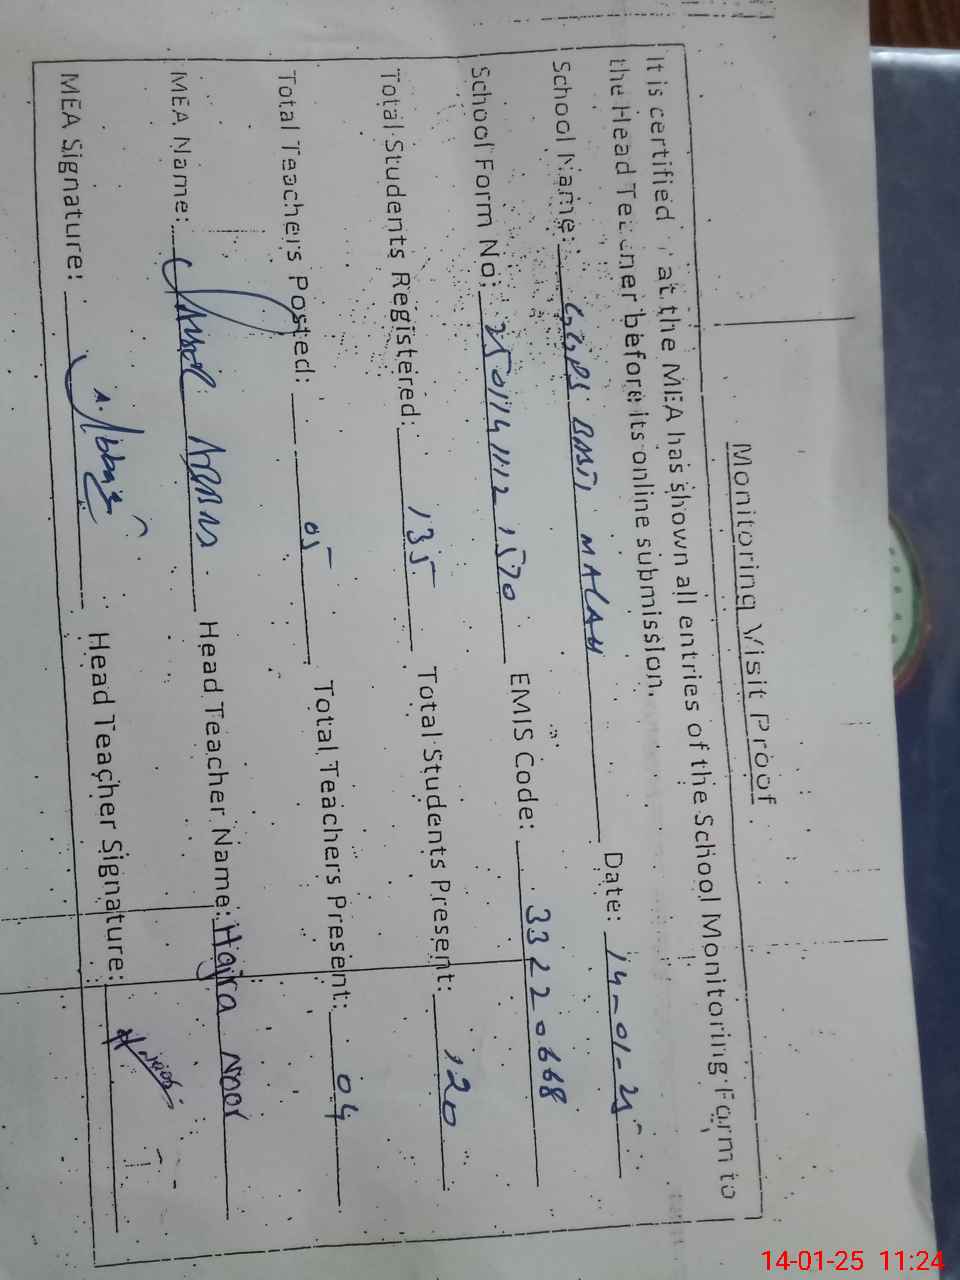 Monitoring Visit Proof
It is certified that the MEA has shown all entries of the School Monitoring Form to
the Head Teacher before its online submission.
School Name: GGPS BASTI MALAH Date: 14-01-25
School Form No: EMIS Code: 33220668
Total Students Registered: 135 Total Students Present: 120
Total Teachers Posted: 05 Total Teachers Present: 04
MEA Name: Abbas Head Teacher Name: Hajra Noor
MEA Signature: Abbas Head Teacher Signature: H.Noor
14-01-25 11:24